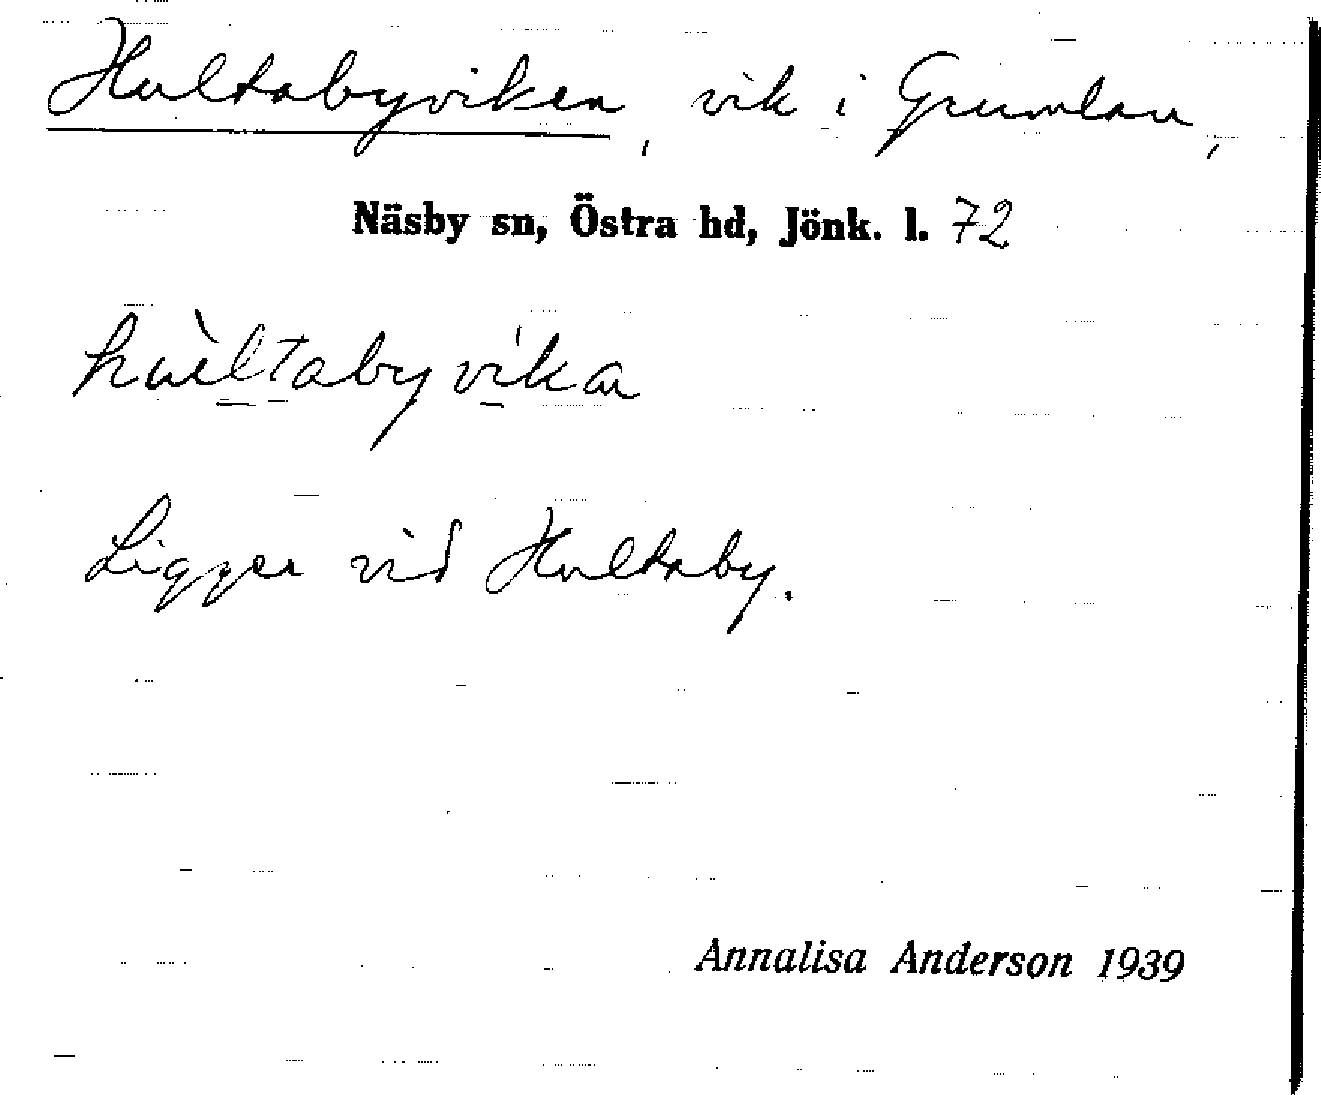 Hultabyviken, vik i Grumlan,
Näsby sn, Östra hd, Jönk. l. 72
hùltabyvíkan
Ligger vid Hultaby.
Annalisa Anderson 1939